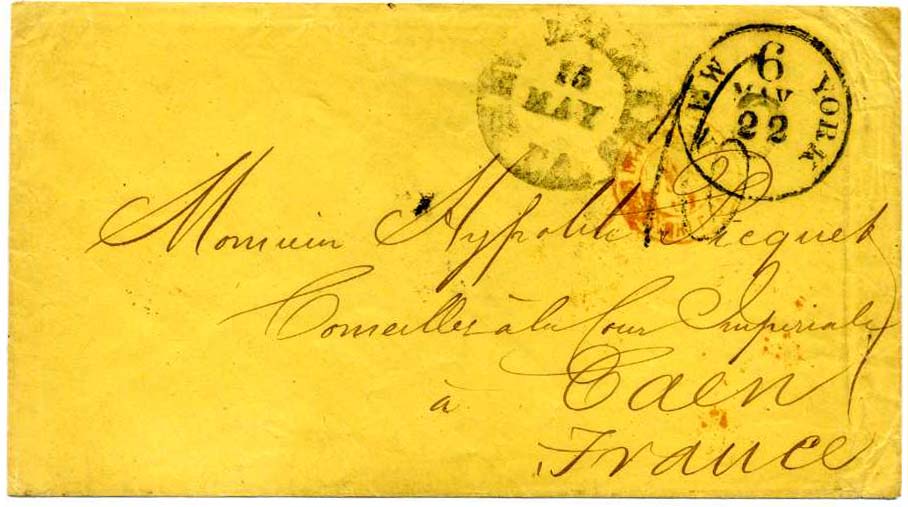 NEW ORLEANS LA.
15
MAY
NEW YORK
6
MAY
22
Monsieur Hypolite Picquet
Conseiller à la Cour Imperiale
à Caen
France